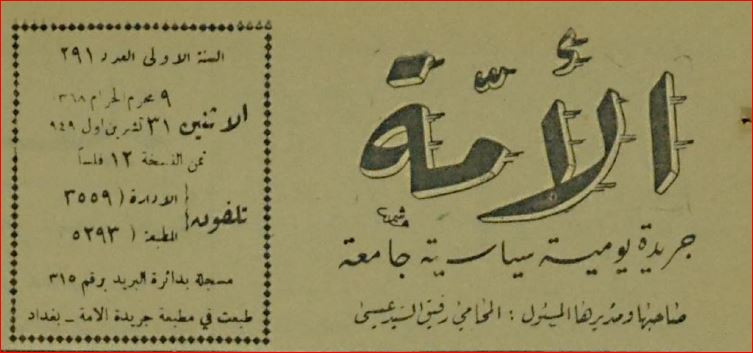 الأمة
جريدة يومية سياسية جامعة
صاحبها ومديرها المسئول : المحامي رفيق السيد عيسى
السنة الاولى العدد ٢٩١
٩ محرم الحرام ٣٦٨
الاثنين ٣١ تشرين اول ٩٤٩
ثمن النسخة ١٢ فلساً
تلفون الادارة ( ٣٥٥٩
المطبعة ( ٥٢٩٣
مسجلة بدائرة البريد برقم ٣١٥
طبعت في مطبعة جريدة الامة - بغداد